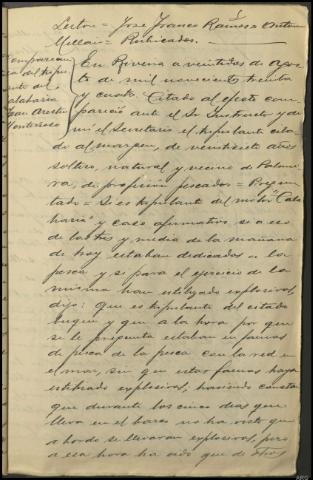 Lector = José Franco Ramos = Antonio
Millan = Rubricados.
Comparecen
cia del tripu
lante del
Calabaria
Juan
En Riveira a veintidos de agos
to de mil novecientos treinta
y cuatro. Citado al efecto com
pareció ante el Sr. Instructor y de
mi el Secretario el tripulante cita
do al margen, de veintisiete años
soltero, natural y vecino de Palmei
ra, de profesión pescador = Pregun
tado = Si es tripulante del motor "Cala
baria" y caso afirmativo si a eso
de las tres y media de la mañana
de hoy estaban dedicados a la
pesca y si para el ejercicio de la
misma han utilizado explosivos,
dijo: que es tripulante del citado
buque y que a la hora por que
se le pregunta estaban en faenas
de pesca de la pesca con la red en
el mar, sin que estas faenas haya
utilizado explosivos, haciendo constar
que durante los cinco dias que
lleva en el barco no ha visto que
a bordo se llevaran explosivos, pero
a esa hora ha oido que de otros